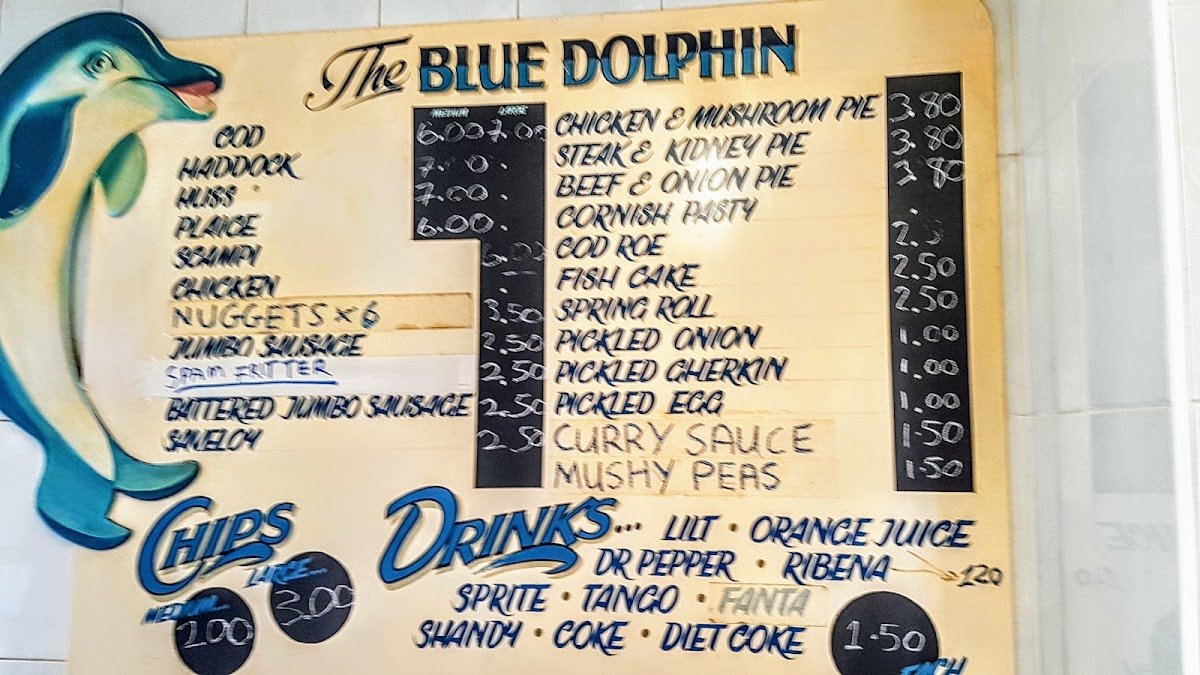 The BLUE DOLPHIN
MEDIUM LARGE
COD 6.00 7.00
HADDOCK
HUSS 7.00
PLAICE 6.00
SCAMPI 6.00
CHICKEN
NUGGETS x 6 3.50
JUMBO SAUSAGE 2.50
SPAM FRITTER 2.50
BATTERED JUMBO SAUSAGE 2.50
SAVELOY 2.50
CHICKEN & MUSHROOM PIE 3.80
STEAK & KIDNEY PIE 3.80
BEEF & ONION PIE 3.80
CORNISH PASTY
COD ROE
FISH CAKE 2.50
SPRING ROLL 2.50
PICKLED ONION 1.00
PICKLED GHERKIN 1.00
PICKLED EGG 1.00
CURRY SAUCE 1.50
MUSHY PEAS 1.50
CHIPS
LARGE... 3.00
MEDIUM... 2.00
DRINKS... LILT • ORANGE JUICE
DR PEPPER • RIBENA 1.20
SPRITE • TANGO • FANTA
SHANDY • COKE • DIET COKE 1.50
EACH